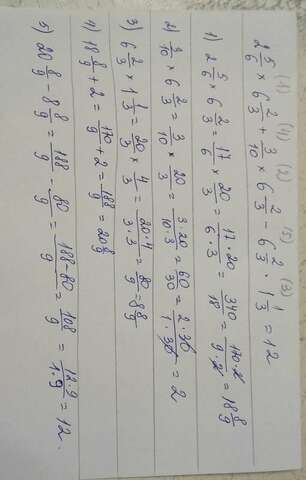 (1) (4) (2) (5) (3)
2 5/6 × 6 2/3 + 3/10 × 6 2/3 - 6 2/3 · 1 1/3 = 12
1) 2 5/6 × 6 2/3 = 17/6 × 20/3 = 17·20/6·3 = 340/18 = 170·2/9·2 = 18 8/9
2) 3/10 × 6 2/3 = 3/10 × 20/3 = 3·20/10·3 = 60/30 = 2·30/1·30 = 2
3) 6 2/3 × 1 1/3 = 20/3 × 4/3 = 20·4/3·3 = 80/9 = 8 8/9
4) 18 8/9 + 2 = 170/9 + 2 = 188/9 = 20 8/9
5) 20 8/9 - 8 8/9 = 188/9 - 80/9 = 188-80/9 = 108/9 = 12·9/1·9 = 12.